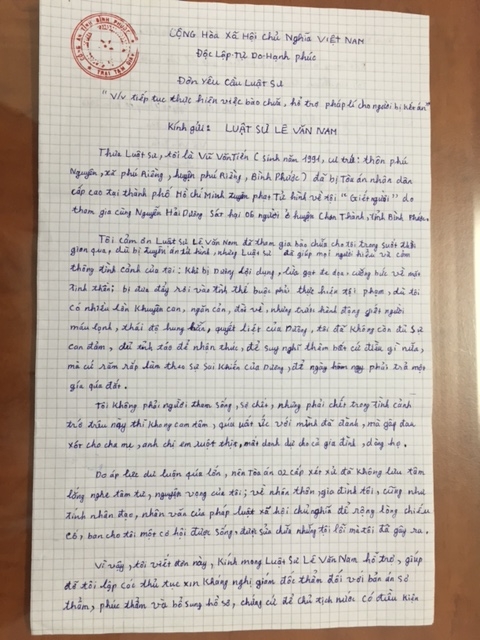 CÔNG AN TỈNH BÌNH PHƯỚC
TRẠI TẠM GIAM
CỘNG Hòa Xã Hội Chủ Nghĩa VIỆT NAM
Độc Lập-Tự Do-Hạnh phúc
Đơn yêu cầu Luật Sư
"V/v tiếp tục thực hiện việc bào chữa, hỗ trợ pháp lí cho người bị kết án"
Kính gửi: LUẬT SƯ LÊ VĂN NAM
Thưa Luật sư, tôi là Vũ Văn Tiến (sinh năm 1991, cư trú: thôn phú
Nguyên, xã phú Riềng, huyện phú Riềng, Bình Phước) đã bị Tòa án nhân dân
cấp cao tại thành phố Hồ Chí Minh tuyên phạt Tử hình về tội "Giết người" do
tham gia cùng Nguyễn Hải Dương. Sát hại 06 người ở huyện Chơn Thành, tỉnh Bình Phước.
Tôi cảm ơn Luật sư Lê Văn Nam đã tham gia bào chữa cho tôi trong suốt thời
gian qua, dù bị tuyên án tử hình, nhưng Luật sư đã giúp mọi người hiểu và cảm
thông tình cảnh của tôi: Khi bị Dương lợi dụng, lừa gạt đe dọa, cưỡng bức về mặt
tinh thần; bị đưa đẩy rơi vào tình thế buộc phải thực hiện tội phạm, dù tôi
có nhiều lần khuyên can, ngăn cản, đòi về, nhưng trước hành động giết người
máu lạnh, thái độ hung hãn, quyết liệt của Dương, tôi đã không còn đủ sự
can đảm, đủ tỉnh táo để nhận thức, để suy nghĩ thêm bất cứ điều gì nữa,
mà cứ răm rắp làm theo sự sai khiến của Dương, để ngày hôm nay phải trả một
giá quá đắt.
Tôi không phải người tham sống, sợ chết, nhưng phải chết trong tình cảnh
trớ trêu này thì không cam tâm, quá uất ức với mình đã đành, mà gây đau
xót cho cha mẹ, anh chị em ruột thịt, mất danh dự cho cả gia đình, dòng họ.
Do áp lực dư luận quá lớn, nên Tòa án 02 cấp xét xử đã không lưu tâm
lắng nghe tâm tư, nguyện vọng của tôi; về nhân thân, gia đình tôi, cũng như
tính nhân đạo, nhân văn của pháp luật xã hội chủ nghĩa để rộng lòng chiếu
cố, ban cho tôi một cơ hội được sống, được sửa chữa những tội lỗi mà tôi đã gây ra.
Vì vậy, tôi viết đơn này, kính mong Luật sư Lê Văn Nam hỗ trợ, giúp
đỡ tôi lập các thủ tục xin Kháng nghị giám đốc thẩm đối với bản án sơ
thẩm, phúc thẩm và bổ sung hồ sơ, chứng cứ để Chủ tịch nước có điều kiện